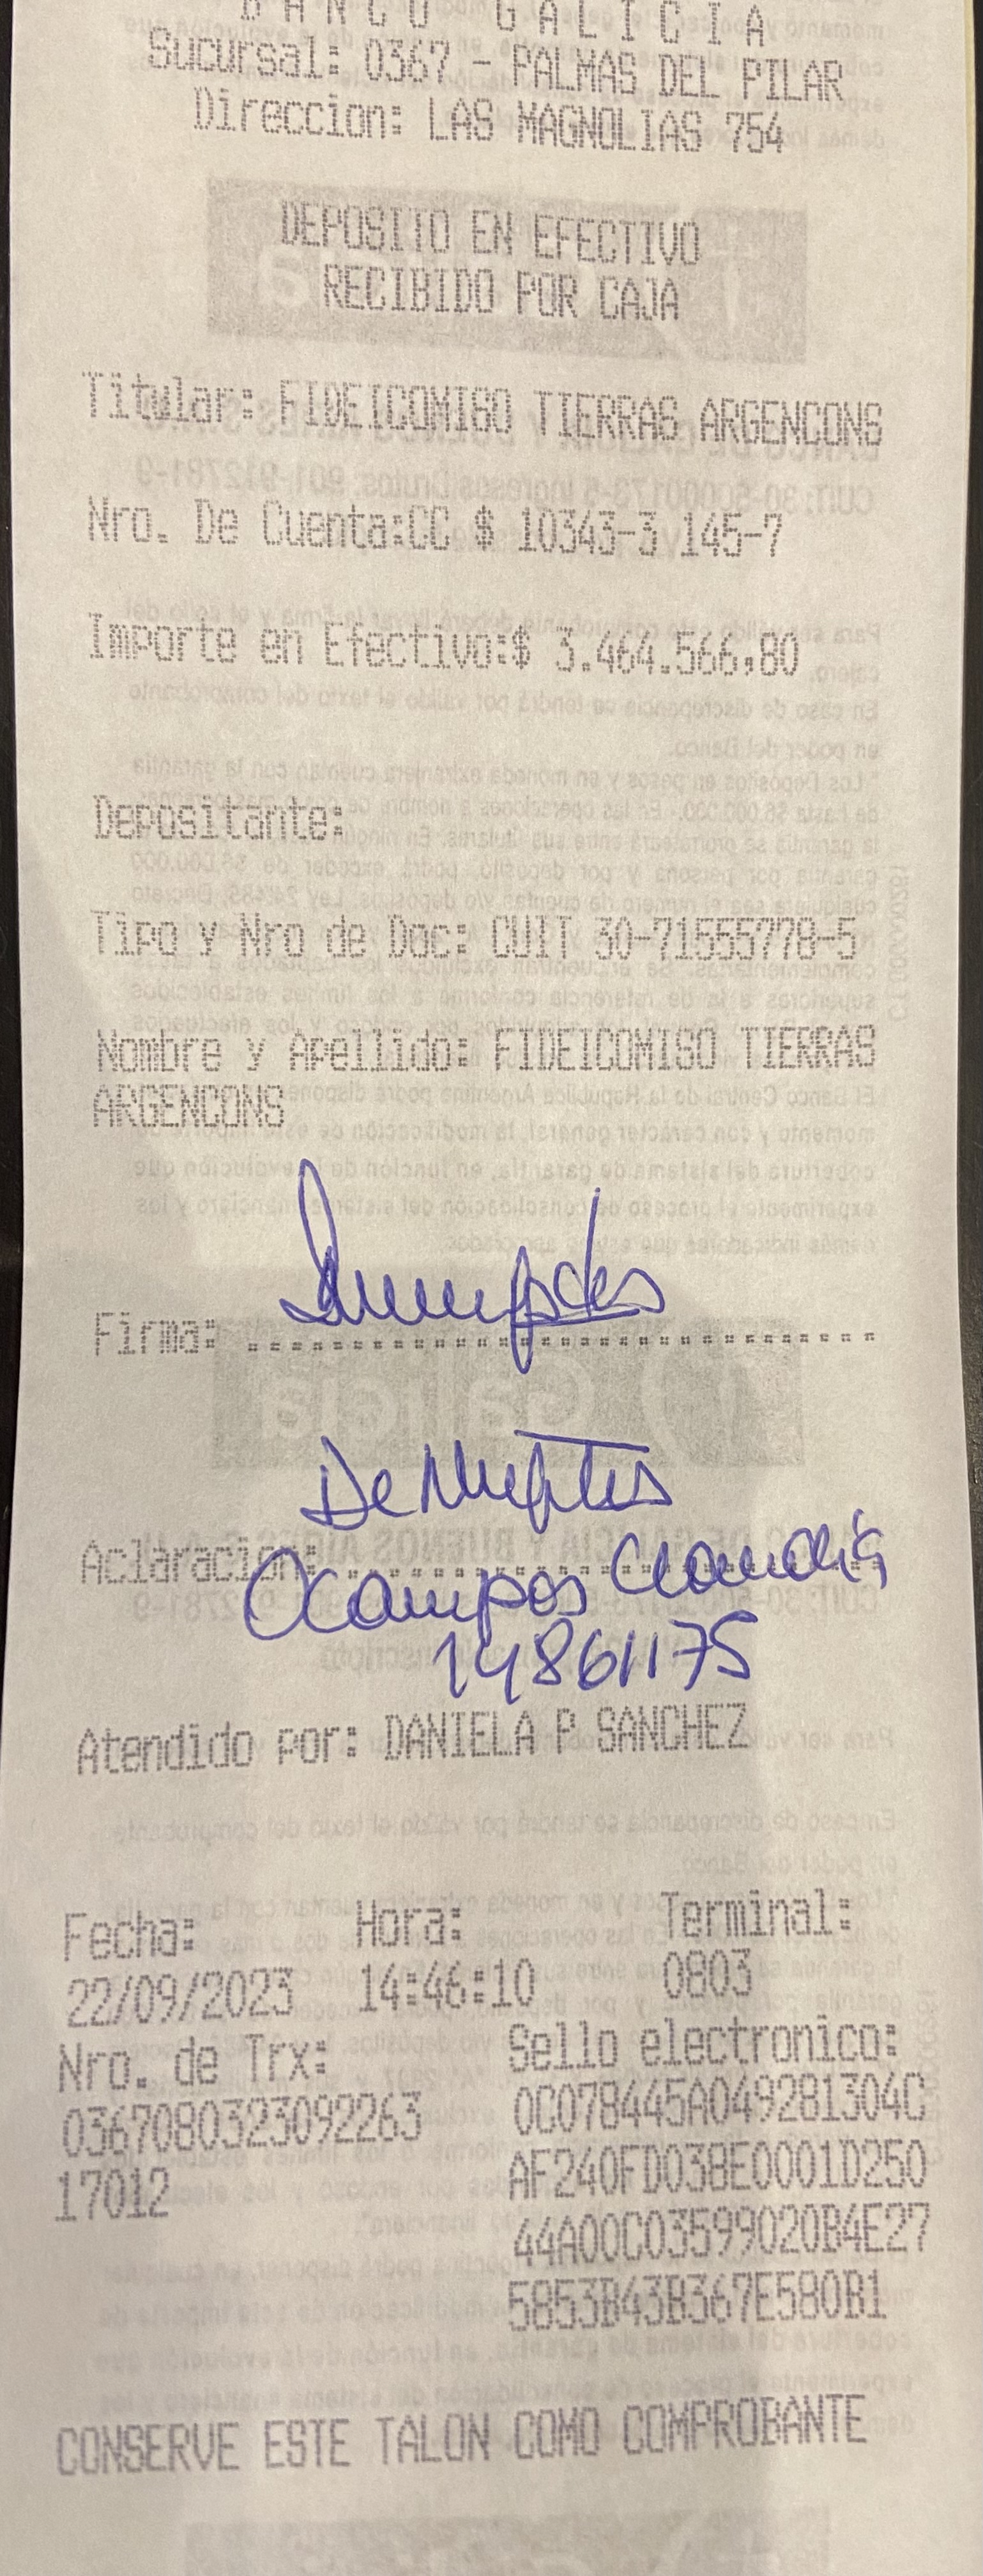 BANCO GALICIA
Sucursal: 0367 - PALMAS DEL PILAR
Direccion: LAS MAGNOLIAS 754
DEPOSITO EN EFECTIVO
RECIBIDO POR CAJA
Titular: FIDEICOMISO TIERRAS ARGENCONS
Nro. De Cuenta:CC $ 10343-3 145-7
Importe en Efectivo:$ 3.464.566.80
Depositante:
Tipo y Nro de Doc: CUIT 30-71555778-5
Nombre y Apellido: FIDEICOMISO TIERRAS
ARGENCONS
Firma:
Aclaracion:
Ocampos Claudia
14861175
Atendido por: DANIELA P SANCHEZ
Fecha: Hora: Terminal:
22/09/2023 14:46:10 0803
Nro. de Trx: Sello electronico:
0367080323092263 0C078445A049281304C
17012 AF240FD038E0001D250
44A00C03599020B4E27
5853B43B367E580B1
CONSERVE ESTE TALON COMO COMPROBANTE